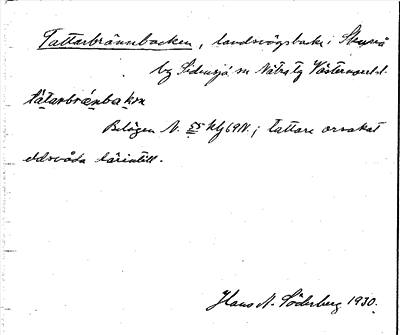 Tattarbrännbacken, landsvägsbacke i Skureå
by Sidensjö sn Nätra tg Västernorrl.
tátarbrǽnbakɒn
Belägen N. 55 klyftN.; tattare orsakat
eldsvåda härintill.
Hans N. Söderberg 1930.